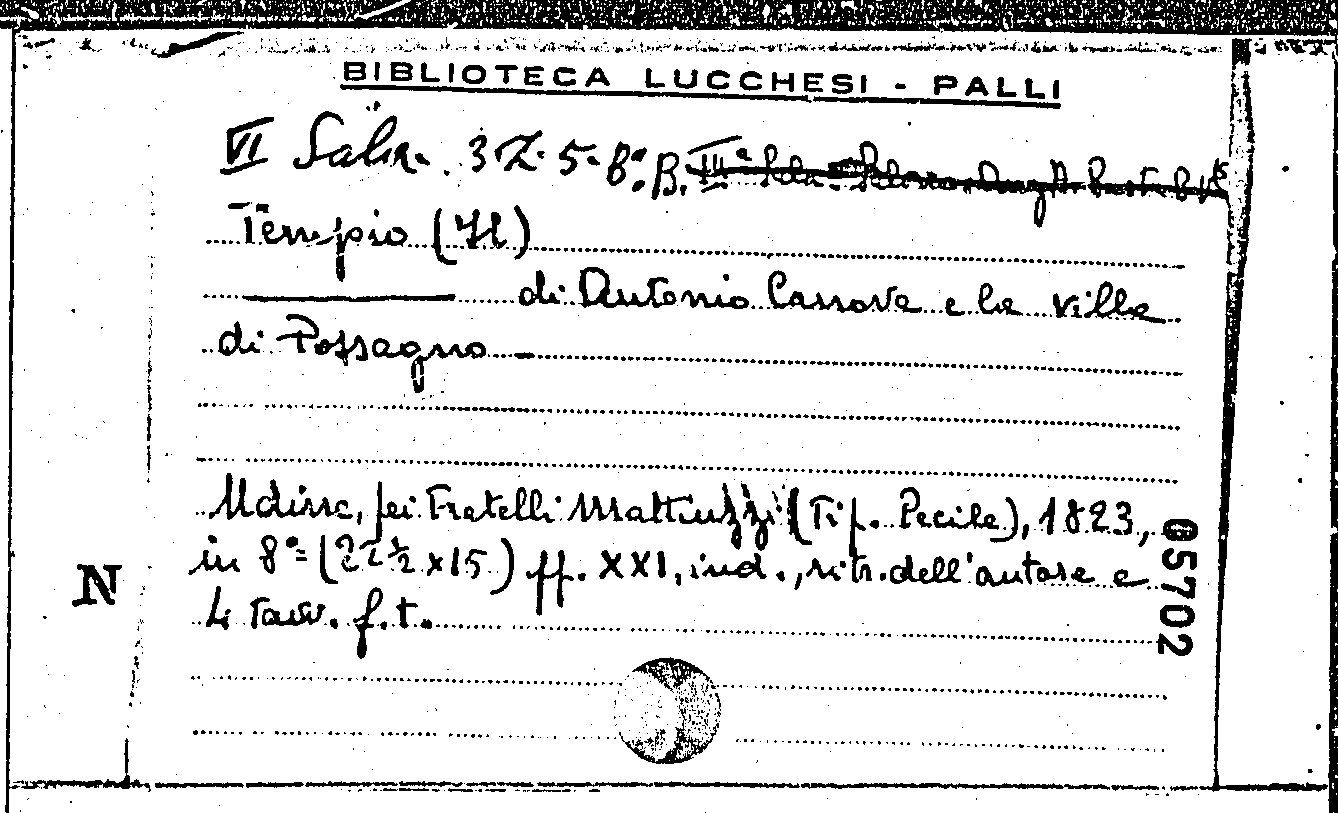 BIBLIOTECA LUCCHESI - PALLI
VI Sala. 3 Z. 5. 8°. B. IIIª Sala
Tempio (Il)
di Antonio Canova e la villa
di Possagno
Udine, pei Fratelli Mattiuzzi (Tip. Pecile), 1823,
in 8° = (22½ x 15) ff. XXI, ind., ritr. dell'autore e
4 tavv. f. t.
N
05702